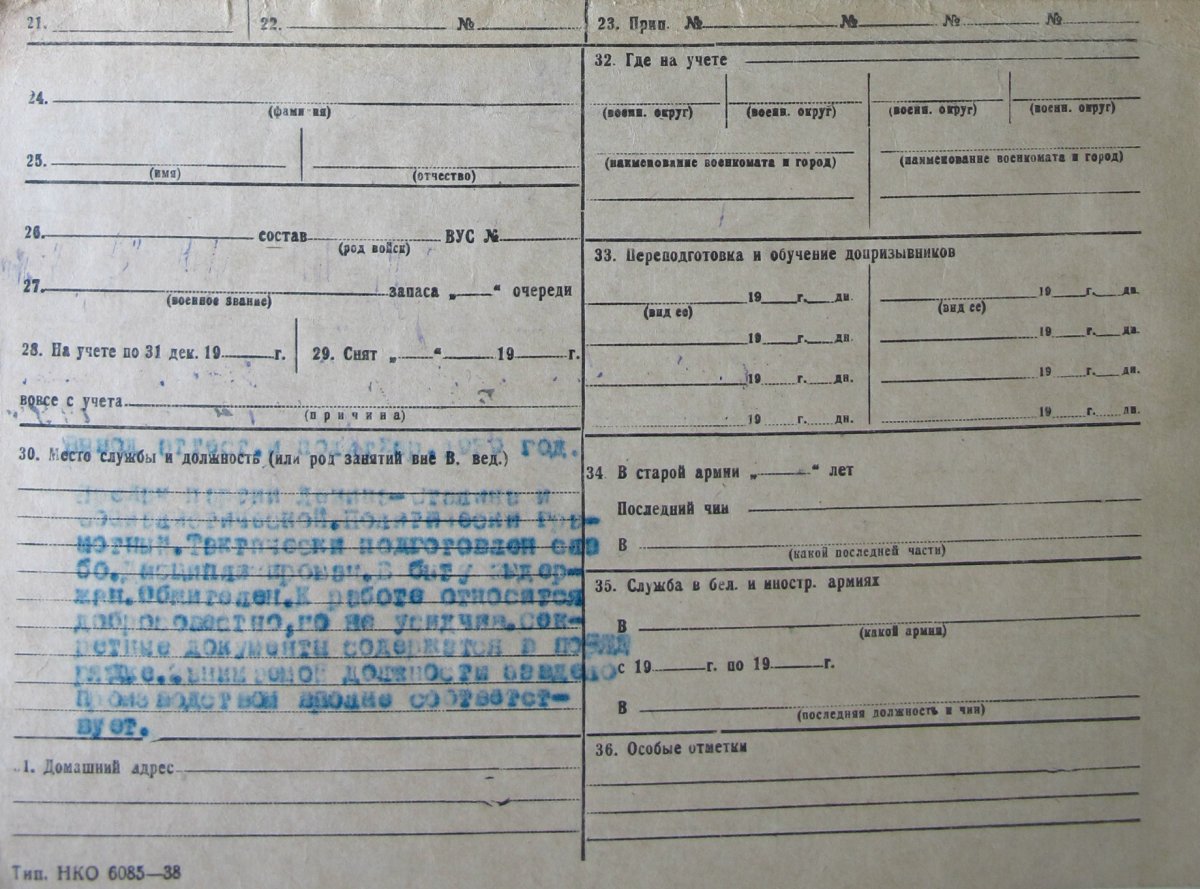 21.
22. №
23. Прип. № № № №
24.
(фамилия)
25.
(имя) (отчество)
26. состав ВУС №
(род войск)
27. запаса „ “ очереди
(военное звание)
28. На учете по 31 дек. 19 г.
29. Снят „ “ 19 г.
вовсе с учета
(причина)
аттест. 1939 год.
30. Место службы и должность (или род занятий вне В. вед.)
Партии Ленина-Сталина и
социалистической. Политически гра-
мотный. Тактически подготовлен сла
бо. Дисциплинирован. В быту выдер-
жан. Общителен. К работе относится
добросовестно, но не усидчив. Сек-
ретные документы содержатся в
должности заведыв
производством вполне соответст-
вует.
1. Домашний адрес
Тип. НКО 6085—38
32. Где на учете
(военн. округ) (военн. округ) (военн. округ) (военн. округ)
(наименование военкомата и город) (наименование военкомата и город)
33. Переподготовка и обучение допризывников
19 г. дн. 19 г. дн.
(вид ее) (вид ее)
19 г. дн. 19 г. дн.
19 г. дн. 19 г. дн.
19 г. дн. 19 г. дн.
34 В старой армии „ “ лет
Последний чин
В
(какой последней части)
35. Служба в бел. и иностр. армиях
В
(какой армии)
с 19 г. по 19 г.
В
(последняя должность и чин)
36. Особые отметки